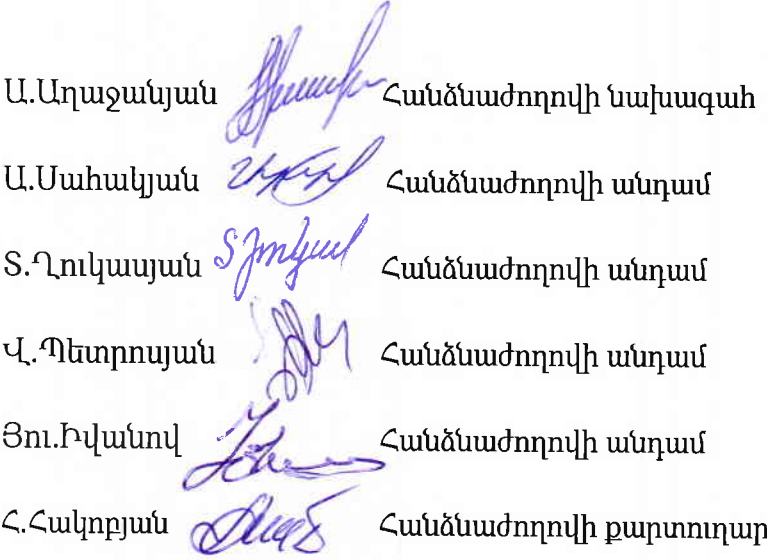 Ա.Աղաջանյան Հանձնաժողովի նախագահ
Ա.Սահակյան Հանձնաժողովի անդամ
Տ.Ղուկասյան Հանձնաժողովի անդամ
Վ.Պետրոսյան Հանձնաժողովի անդամ
Յու.Իվանով Հանձնաժողովի անդամ
Հ.Հակոբյան Հանձնաժողովի քարտուղար